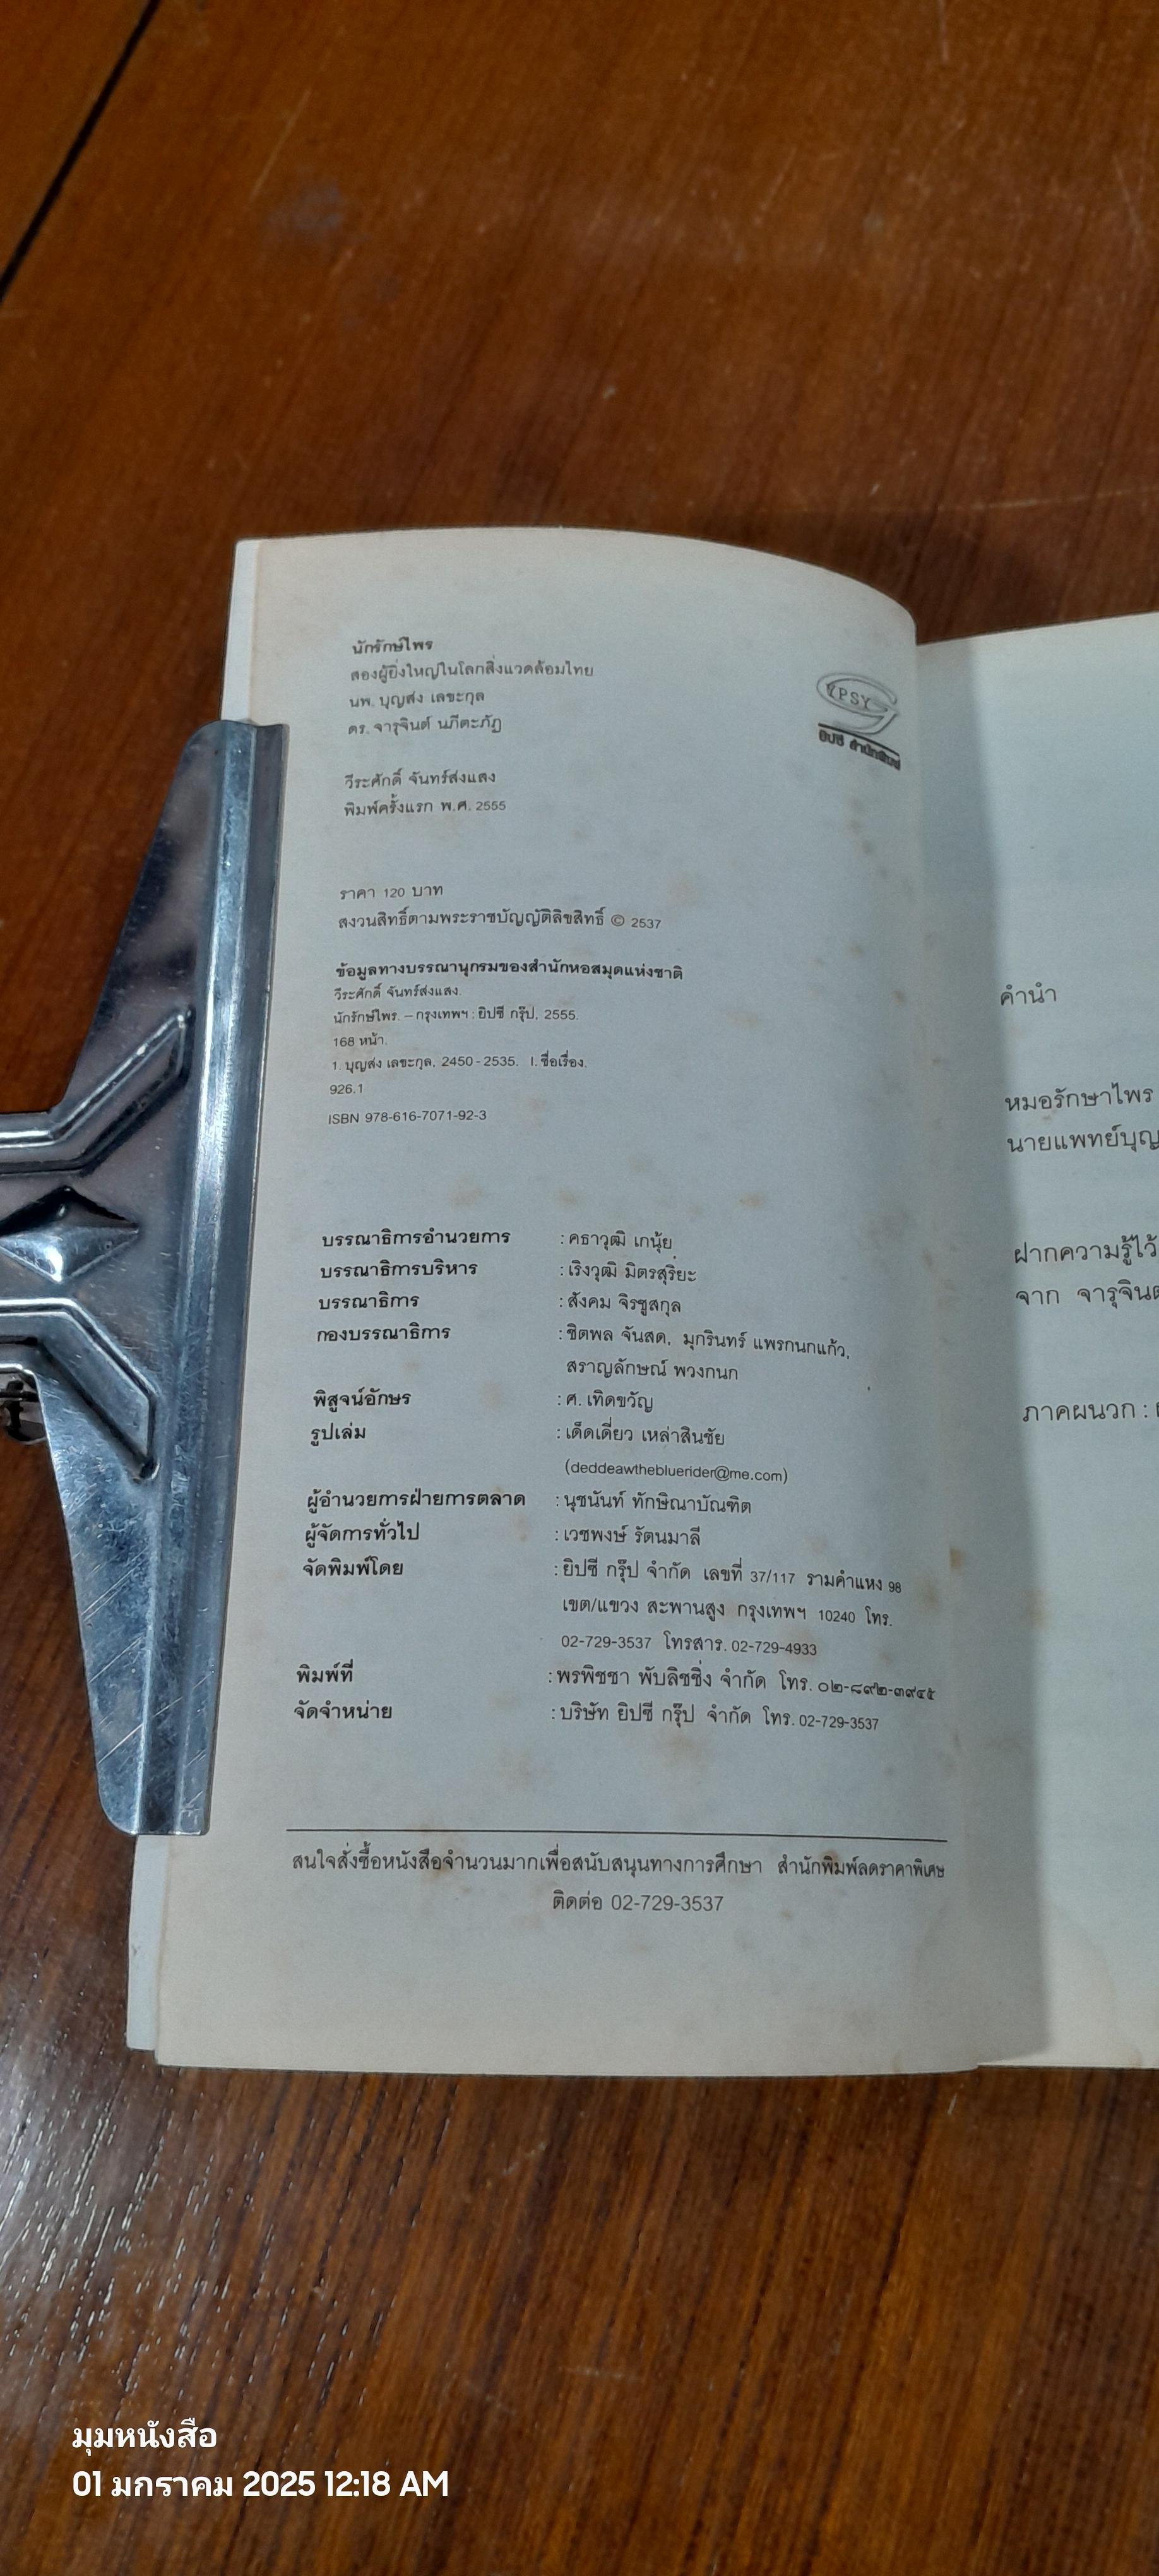 นักรักษ์ไพร
สองผู้ยิ่งใหญ่ในโลกสิ่งแวดล้อมไทย
นพ. บุญส่ง เลขะกุล
ดร. จารุจินต์ นภีตะภัฏ
YPSY
ยิปซี สำนักพิมพ์
วีระศักดิ์ จันทร์ส่งแสง
พิมพ์ครั้งแรก พ.ศ. 2555
ราคา 120 บาท
สงวนสิทธิ์ตามพระราชบัญญัติลิขสิทธิ์ © 2537
ข้อมูลทางบรรณานุกรมของสำนักหอสมุดแห่งชาติ
วีระศักดิ์ จันทร์ส่งแสง.
นักรักษ์ไพร. – กรุงเทพฯ : ยิปซี กรุ๊ป, 2555.
168 หน้า.
1. บุญส่ง เลขะกุล, 2450 - 2535. I. ชื่อเรื่อง.
926.1
ISBN 978-616-7071-92-3
บรรณาธิการอำนวยการ : คธาวุฒิ เกนุ้ย
บรรณาธิการบริหาร : เริงวุฒิ มิตรสุริยะ
บรรณาธิการ : สังคม จิรชูสกุล
กองบรรณาธิการ : ชิตพล จันสด, มุกรินทร์ แพรกนกแก้ว,
สราญลักษณ์ พวงกนก
พิสูจน์อักษร : ศ. เทิดขวัญ
รูปเล่ม : เด็ดเดี่ยว เหล่าสินชัย
(deddeawthebluerider@me.com)
ผู้อำนวยการฝ่ายการตลาด : นุชนันท์ ทักษิณาบัณฑิต
ผู้จัดการทั่วไป : เวชพงษ์ รัตนมาลี
จัดพิมพ์โดย : ยิปซี กรุ๊ป จำกัด เลขที่ 37/117 รามคำแหง 98
เขต/แขวง สะพานสูง กรุงเทพฯ 10240 โทร.
02-729-3537 โทรสาร. 02-729-4933
พิมพ์ที่ : พรพิชชา พับลิชชิ่ง จำกัด โทร. ๐๒-๘๙๒-๓๙๔๕
จัดจำหน่าย : บริษัท ยิปซี กรุ๊ป จำกัด โทร. 02-729-3537
สนใจสั่งซื้อหนังสือจำนวนมากเพื่อสนับสนุนทางการศึกษา สำนักพิมพ์ลดราคาพิเศษ
ติดต่อ 02-729-3537
คำนำ
หมอรักษาไพร
นายแพทย์บุญ
ฝากความรู้ไว้
จาก จารุจินต
ภาคผนวก :
มุมหนังสือ
01 มกราคม 2025 12:18 AM